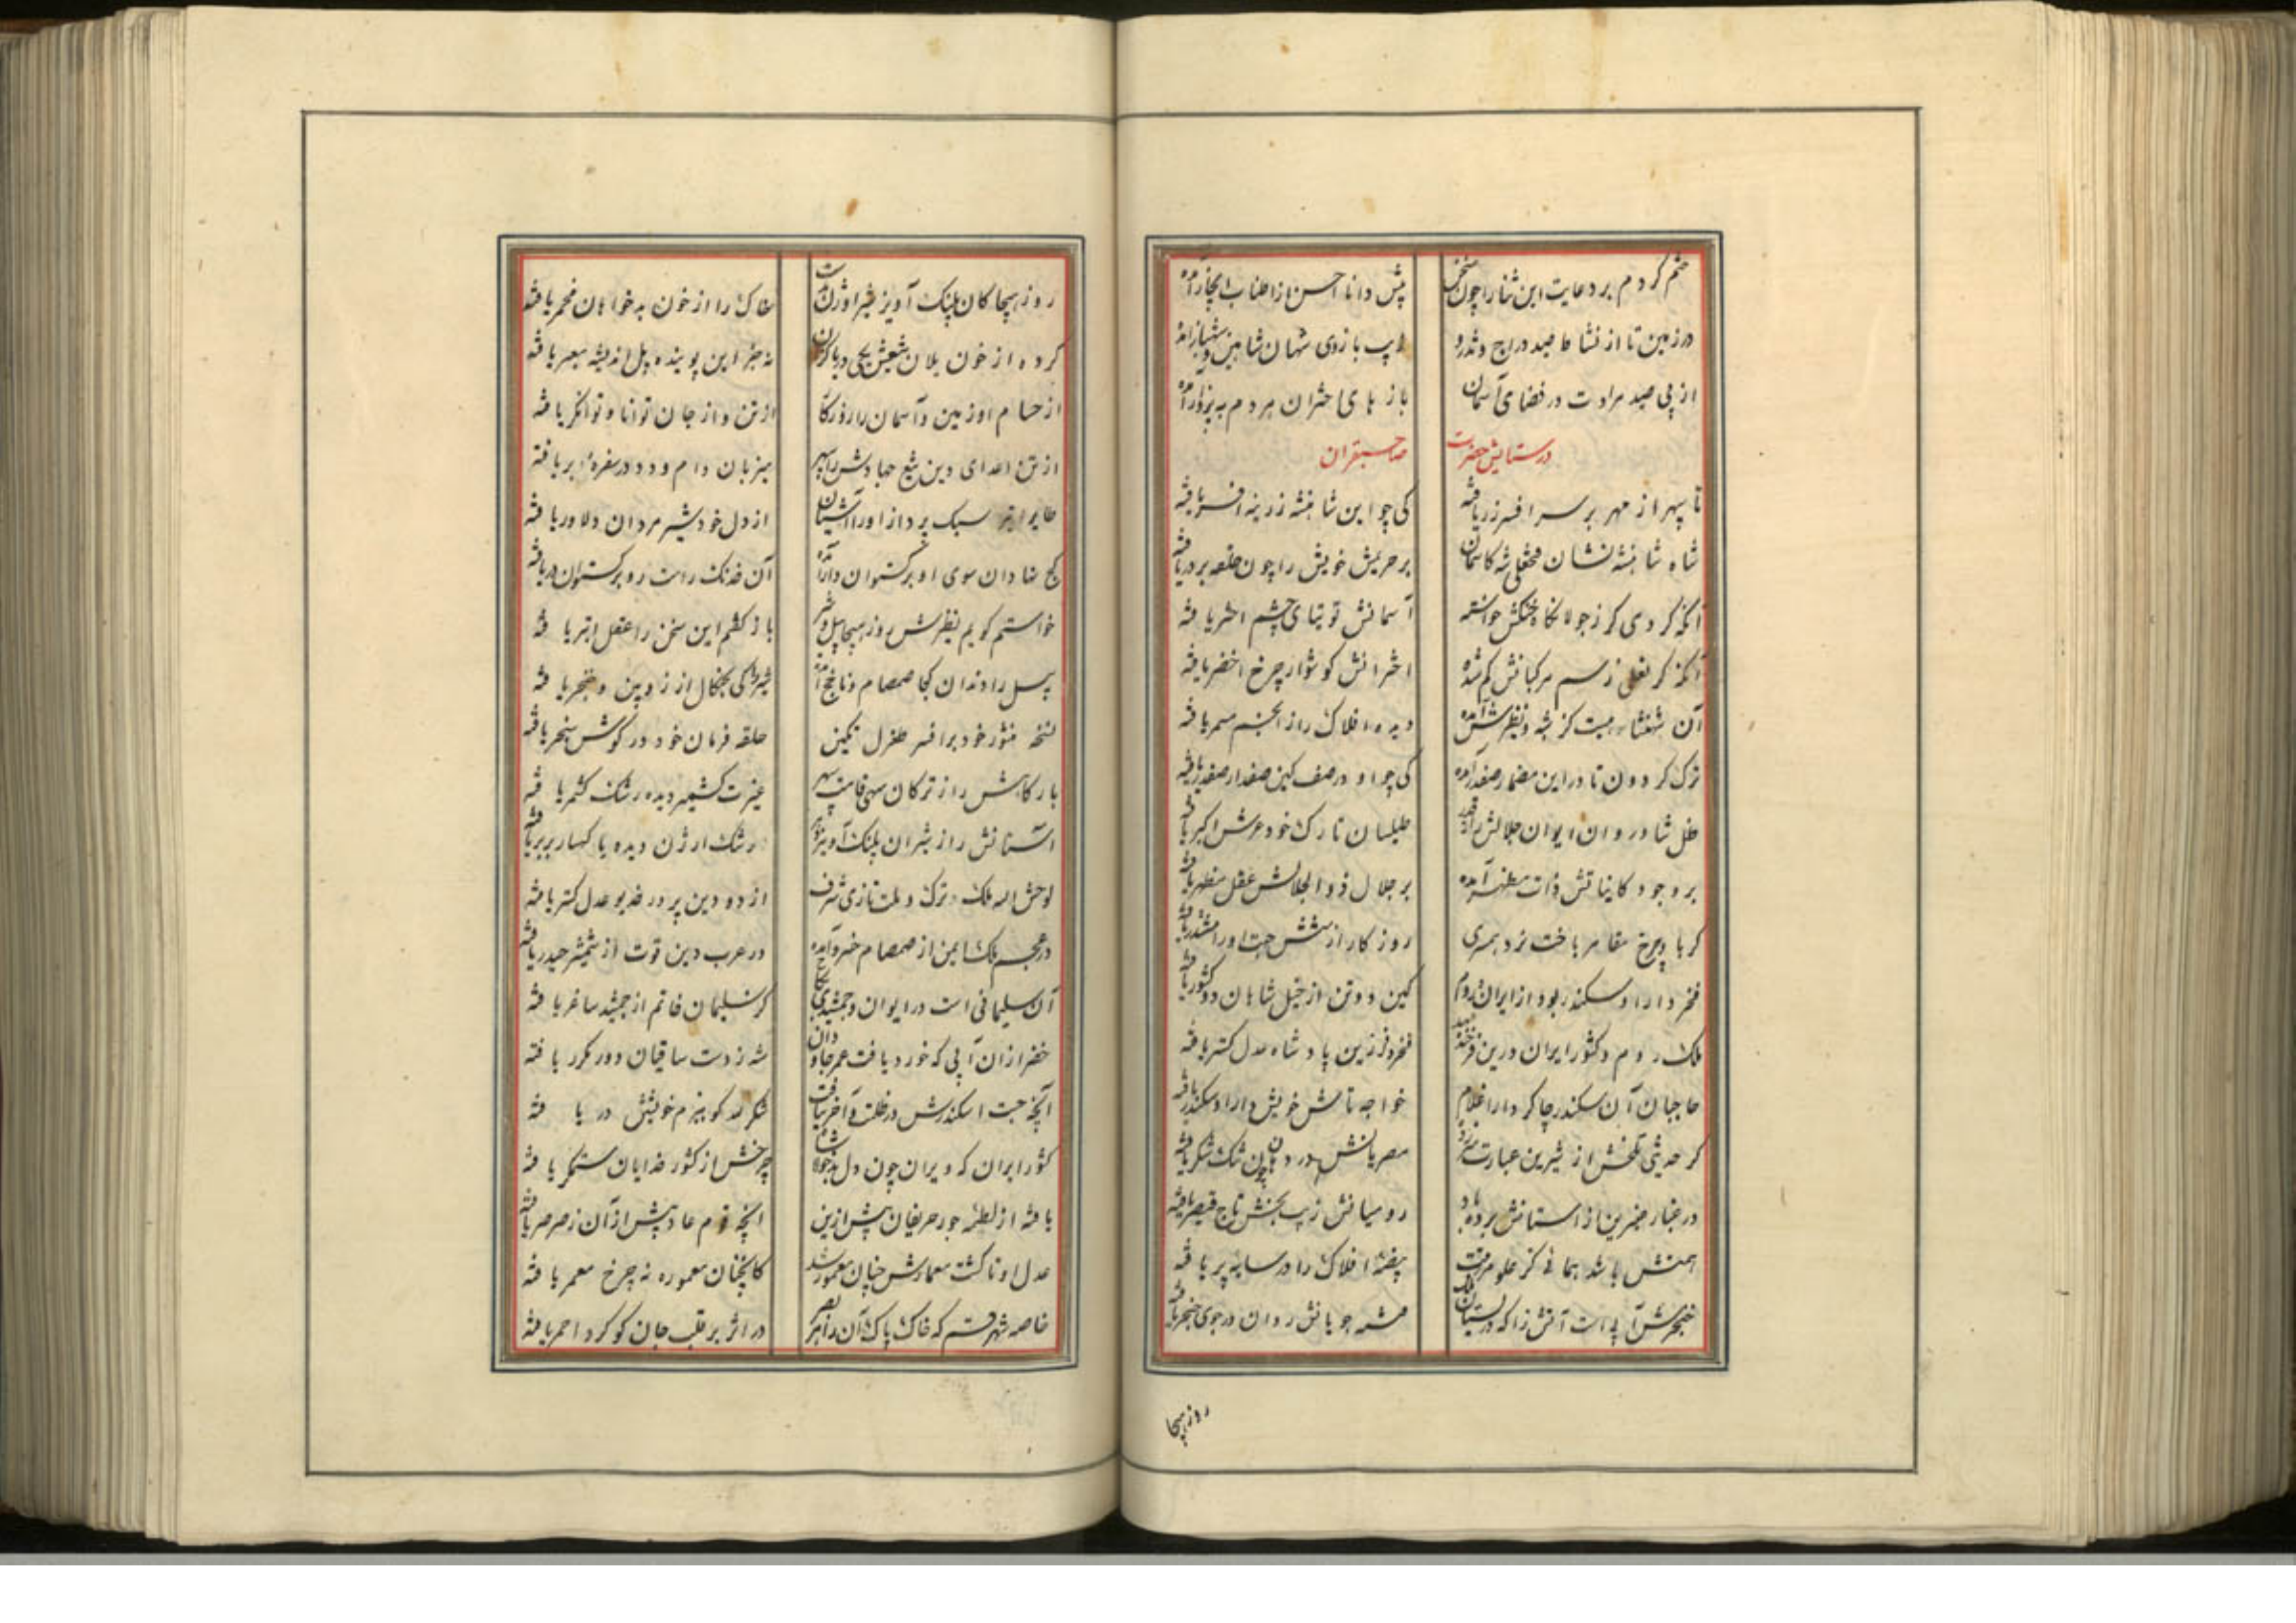 ختم کردم بر دعایت این ثنا را چون سخن
پیش دانا احسن از اطناب ایجاز آمده
در زمین تا از نشاط صید دراج و تذرو
زیب بازوی شهان شاهین و شهباز آمده
از پی صید مرادت در فضای آسمان
بازهای اختران هر دم به پرواز آمده
در ستایش حضرت صاحبقران
تا سپهر از مهر بر سر افسر زر یافته
کی چو این شاهنشه زرینه افسر یافته
شاه شاهنشه نشان فتحعلی شه کاسمان
بر حریمش خویش را چون حلقه بر در یافته
آنکه گردی کز جولانگاه خنگش خواسته
آسمانش توتیای چشم اختر یافته
آنکه گر نعلی ز سم مرکبانش گم شده
اخترانش گوشوار چرخ اخضر یافته
آن شهنشاه
دیده افلاک را ز انجم مسمر یافته
ترک گردون تا در این مضمار صفدر آمده
کی چو او در صف کین صفدار صفدر یافته
ظل شادروان ایوان جلالش را
طیلسان تارک خود عرش اکبر یافته
بر وجود کایناتش ذات مظهر آمده
بر جلال ذوالجلالش عقل مظهر یافته
گر با چرخ مقامر باخت نرد همسری
روزگار از شش جهت او را مششدر یافته
فخر دارا و سکندر بود از ایران و روم
کین دو تن از خیل شاهان دو کشور یافته
ملک روم و کشور ایران درین فرخنده عهد
فخر و فر زین پادشاه عدل گستر یافته
حاجبان آن سکندر چاکر دارا غلام
خواجه تاش خویش دارا و سکندر یافته
گر حدیثی تلخش از شیرین عبارت سر زد
مصریانش در دهان چون تنگ شکر یافته
در غبار عنبرین از آستانش برده باد
رومیانش زیب بخش تاج قیصر یافته
همتش باشد همائی کز علو مرتبت
بیضه افلاک را در سایه پر یافته
خنجرش آبی است آتش زا که در بستان ملک
فتنه جویانش روان در جوی خنجر یافته
روز هیجا
روز هیجا کان پلنگ آویز شیر اوژن
خاک را از خون بدخواهان مخمر یافته
کرده از خون یلان تیغش یکی دریا کز آن
نه جز این پوینده پل اندیشه معبر یافته
از حسام او زمین و آسمان را روزگار
از تن و از جان توانا و توانگر یافته
از تن اعدای دین تیغ جهادش را سپهر
میزبان دام و دد در سفره بر یافته
طایر تیر سبک پرواز او را آشیان
از دل خود شیر مردان دلاور یافته
کج نهادان سوی او برگستوان دار آمده
آن خدنگ راست رو برگستوان در یافته
خواستم گویم نظیرش روز هیجا پیل و شیر
باز گفتم این سخن را عقل ابتر یافته
پیل را دندان کجا صمصام و ناچخ آمده
شیر کی چنگال از زوبین و خنجر یافته
نسخه منشور خود بر افسر طغرل نگین
حلقه فرمان خود در گوش سنجر یافته
بارگاهش را ز ترکان سهی قامت سپهر
غیرت کشمیر دیده رشک کشمر یافته
آستانش را ز شیران پلنگ آویز
رشک ارژن دیده یا کهسار بربر یافته
لوحش الله ملک ترک و ملت تازی شرف
از دو دین پرور خدیو عدل گستر یافته
در عجم ملک ایمن از صمصام خسرو آمده
در عرب دین قوت از شمشیر حیدر یافته
آن سلیمانی است در ایوان و جمشیدی بگاه
کز سلیمان خاتم از جمشید ساغر یافته
خضر از آن آبی که خورد و یافت عمر جاودان
شه ز دست ساقیان دور مکرر یافته
آنچه جست اسکندرش در ظلمت و آخر نیافت
شکر لله کو ببزم خویشش در یافته
کشور ایران که ویران چون دل بدخواه شد
چرخش از کشور خدایان ستمگر یافته
یافته از لطمه جور حریفان پیش ازین
آنچه قوم عاد پیش از آن ز صرصر یافته
عدل او تا گشت معمارش چنان معمور شد
کانچنان معموره نه چرخ معمر یافته
خاصه شهر قم که خاک پاک آن را بصر
در اثر بر قلب جان گوگرد احمر یافته